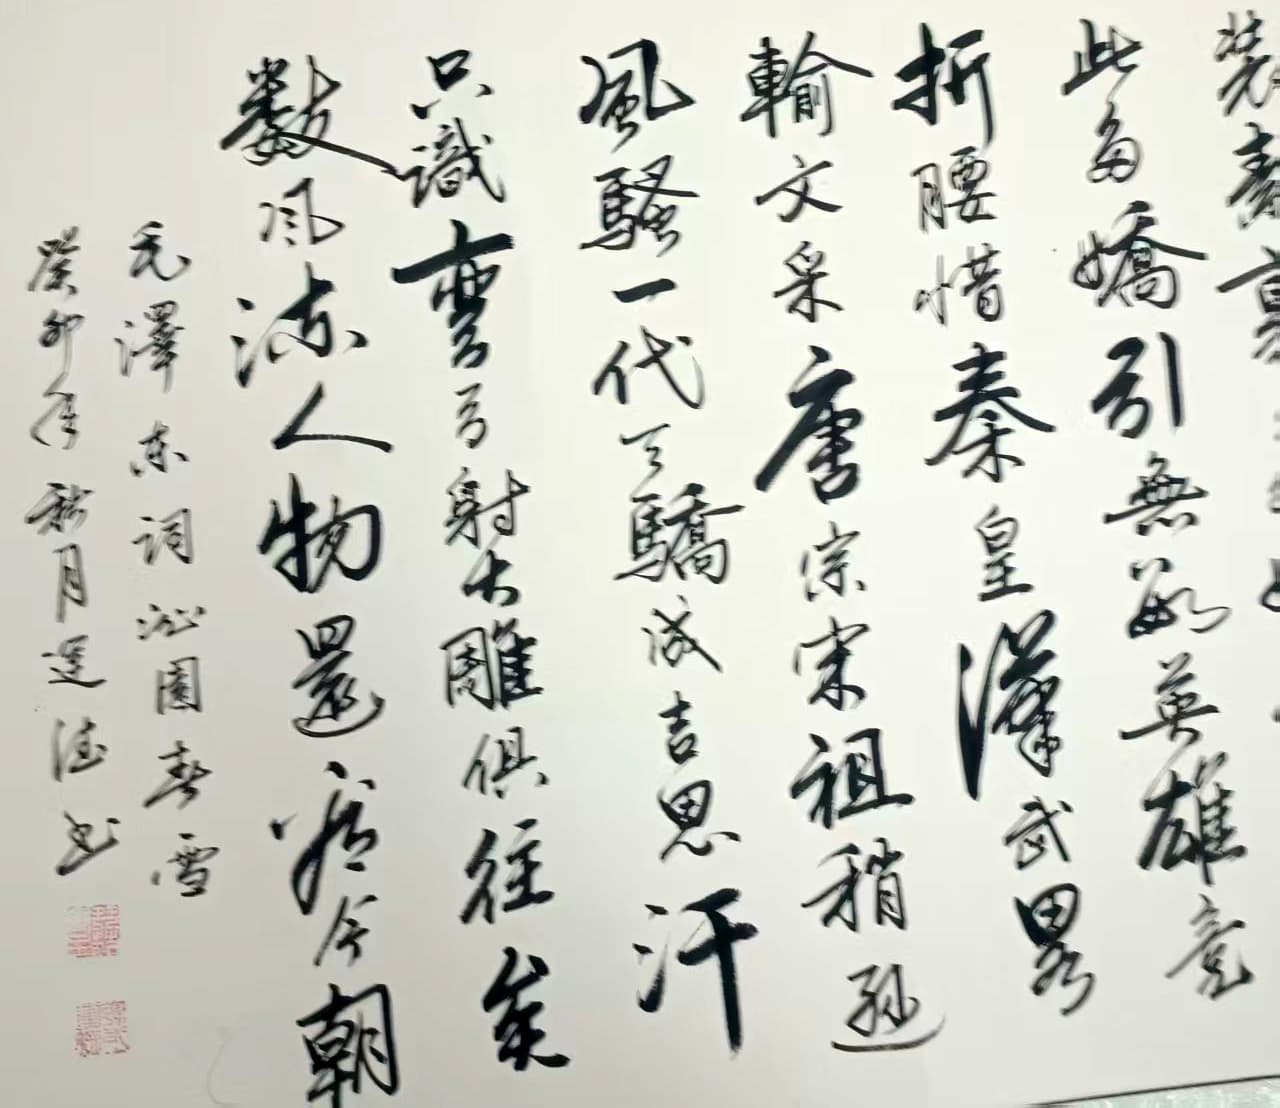 裝素裹
此多嬌引無數英雄竞
折腰惜秦皇漢武畧
輸文采唐宗宋祖稍遜
風騷一代天驕成吉思汗
只識彎弓射大雕俱往矣
数风流人物還看今朝
毛澤东词沁園春雪
癸卯年秋月德书